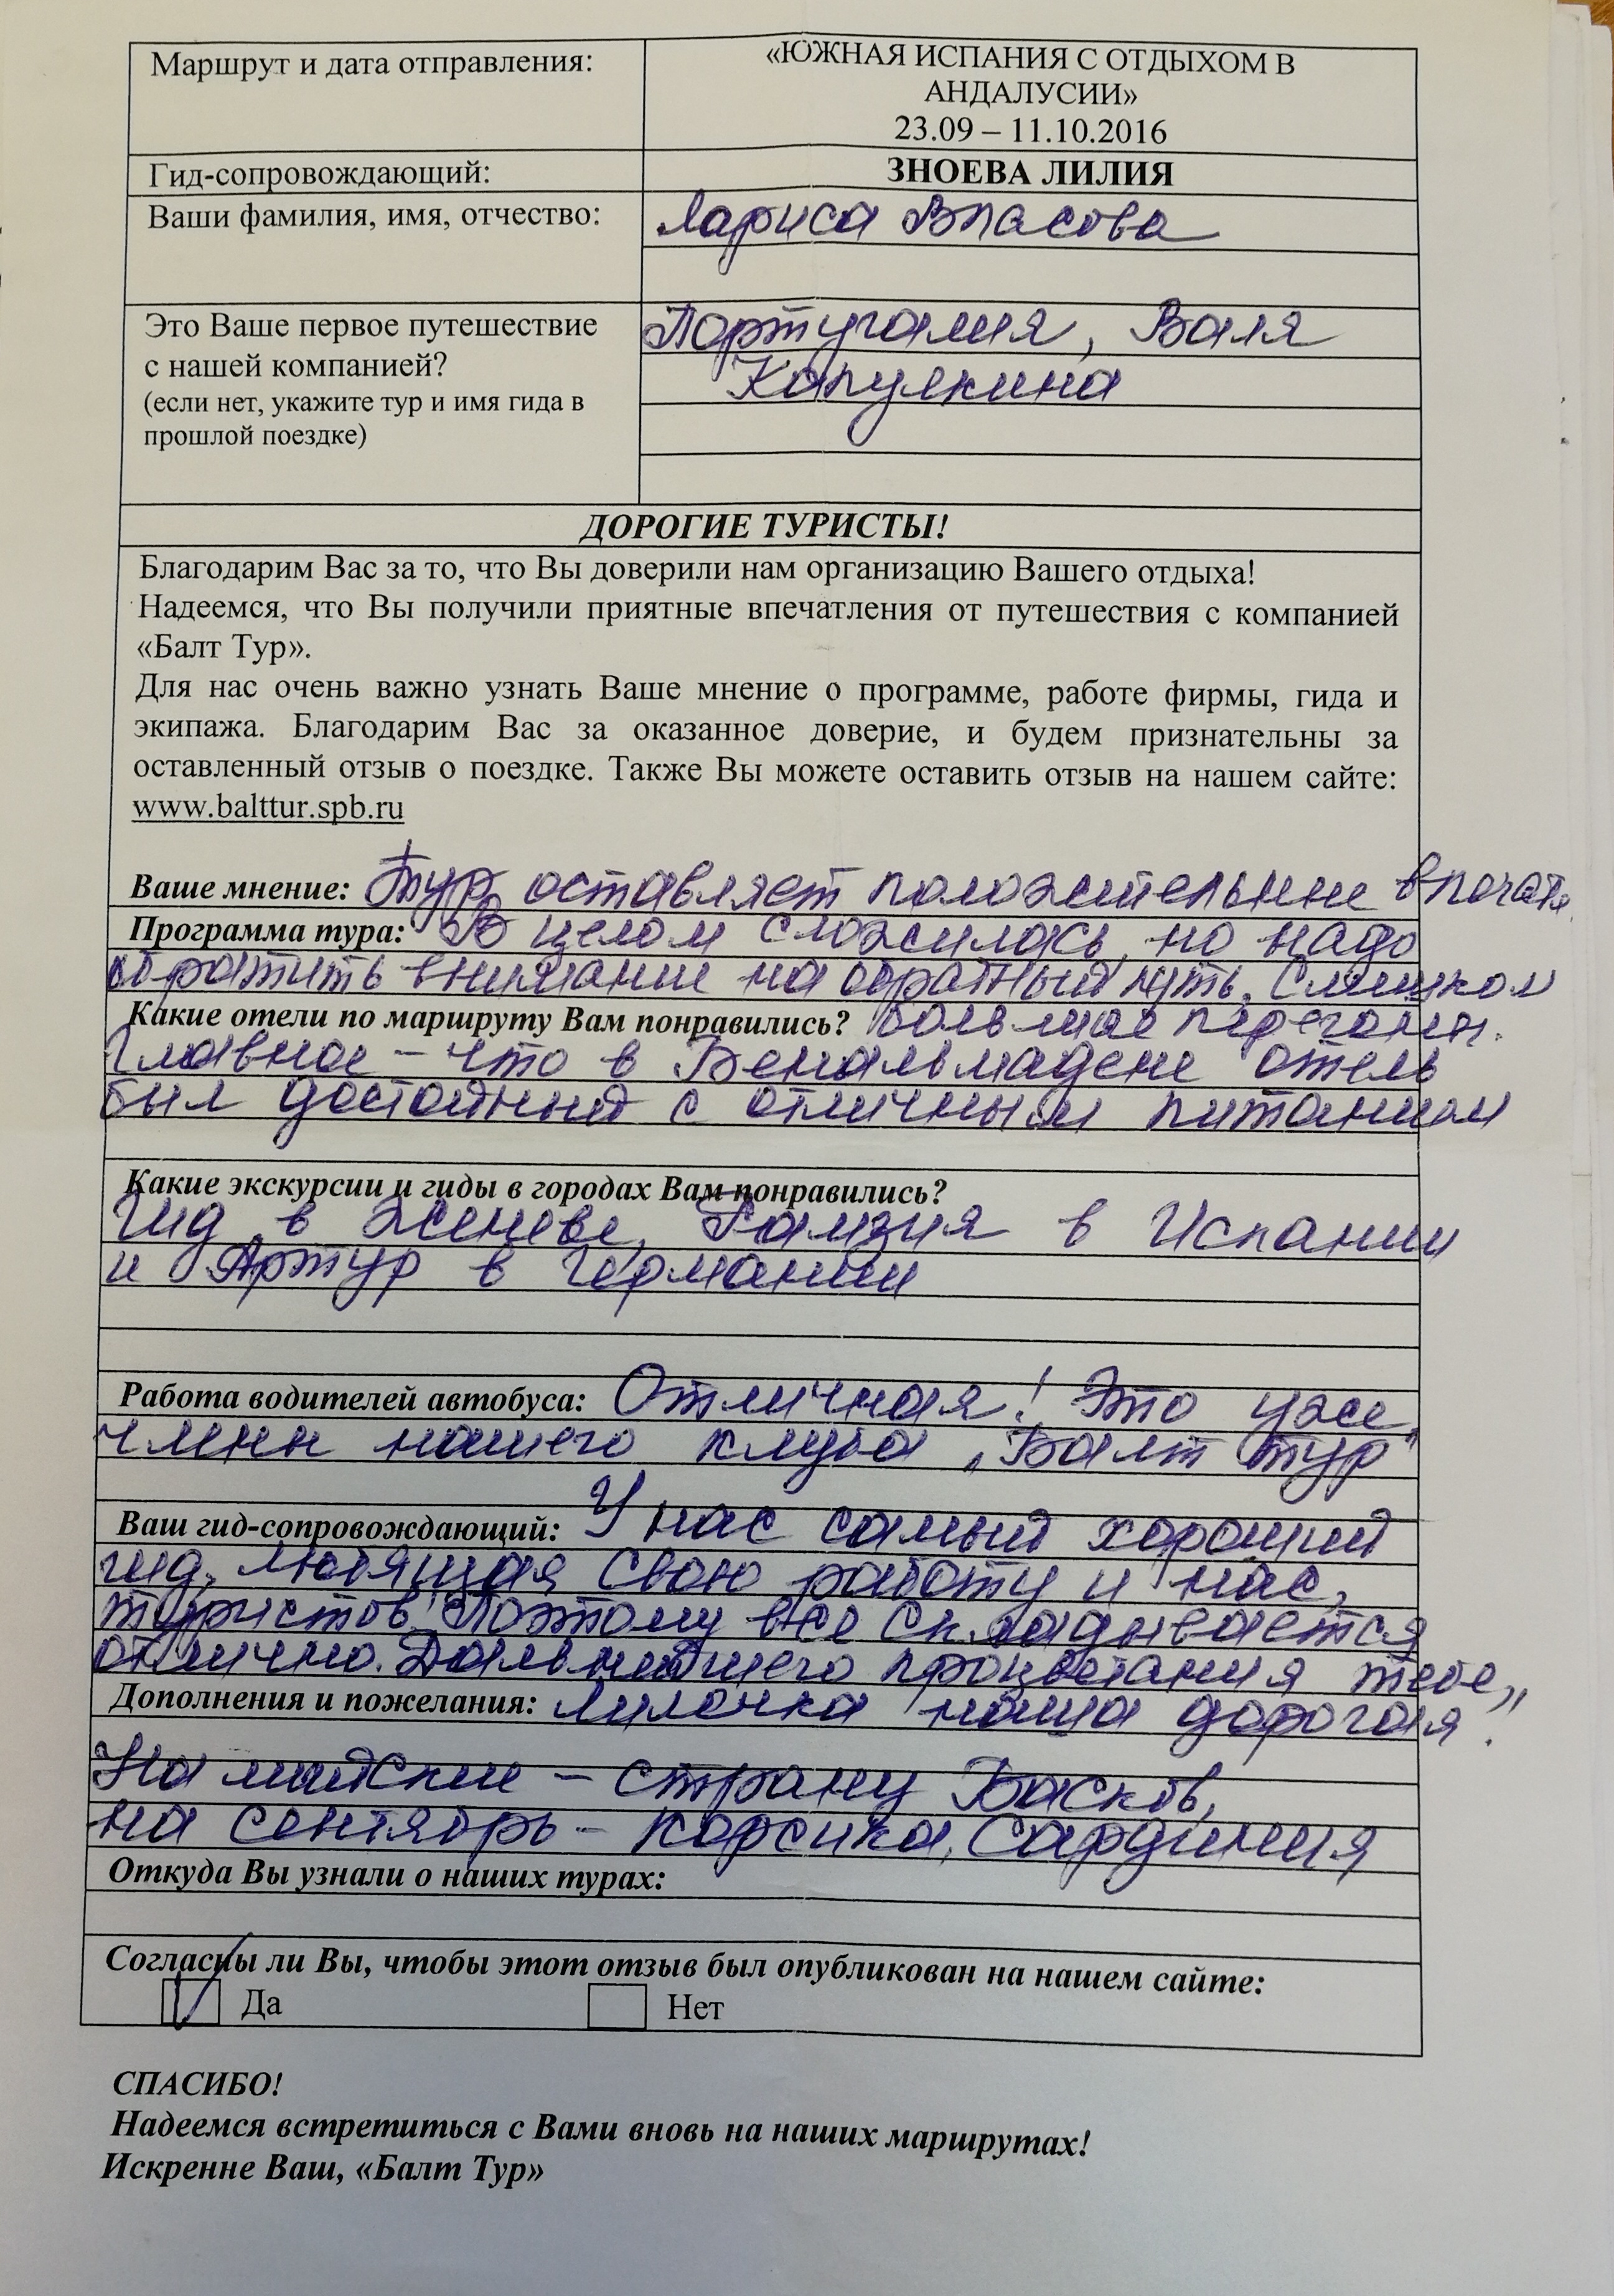 Маршрут и дата отправления:
«ЮЖНАЯ ИСПАНИЯ С ОТДЫХОМ В
АНДАЛУСИИ»
23.09 – 11.10.2016
Гид-сопровождающий:
ЗНОЕВА ЛИЛИЯ
Ваши фамилия, имя, отчество:
Лариса Власова
Это Ваше первое путешествие
с нашей компанией?
(если нет, укажите тур и имя гида в
прошлой поездке)
Португалия, Валя
Капулкина
ДОРОГИЕ ТУРИСТЫ!
Благодарим Вас за то, что Вы доверили нам организацию Вашего отдыха!
Надеемся, что Вы получили приятные впечатления от путешествия с компанией
«Балт Тур».
Для нас очень важно узнать Ваше мнение о программе, работе фирмы, гида и
экипажа. Благодарим Вас за оказанное доверие, и будем признательны за
оставленный отзыв о поездке. Также Вы можете оставить отзыв на нашем сайте:
www.balttur.spb.ru
Ваше мнение: Тур оставляет положительные впечатл
Программа тура: В целом сложилась, но надо
обратить внимание на обратный путь. Слишком
Какие отели по маршруту Вам понравились? большие перегоны.
Главное – что в Бенальмадене отель
был достойный с отличным питанием
Какие экскурсии и гиды в городах Вам понравились?
Гид в Женеве, Рамзия в Испании
и Артур в Германии
Работа водителей автобуса: Отличная! Это уже
члены нашего клуба „Балт тур"
Ваш гид-сопровождающий: У нас самый хороший
гид, любящая свою работу и нас,
туристов. Поэтому все складывается
отлично. Дальнейшего процветания тебе,
Дополнения и пожелания: Лилечка наша дорогая!
На майские – страну Басков,
на сентябрь – Корсика, Сардиния
Откуда Вы узнали о наших турах:
Согласны ли Вы, чтобы этот отзыв был опубликован на нашем сайте:
Да Нет
СПАСИБО!
Надеемся встретиться с Вами вновь на наших маршрутах!
Искренне Ваш, «Балт Тур»